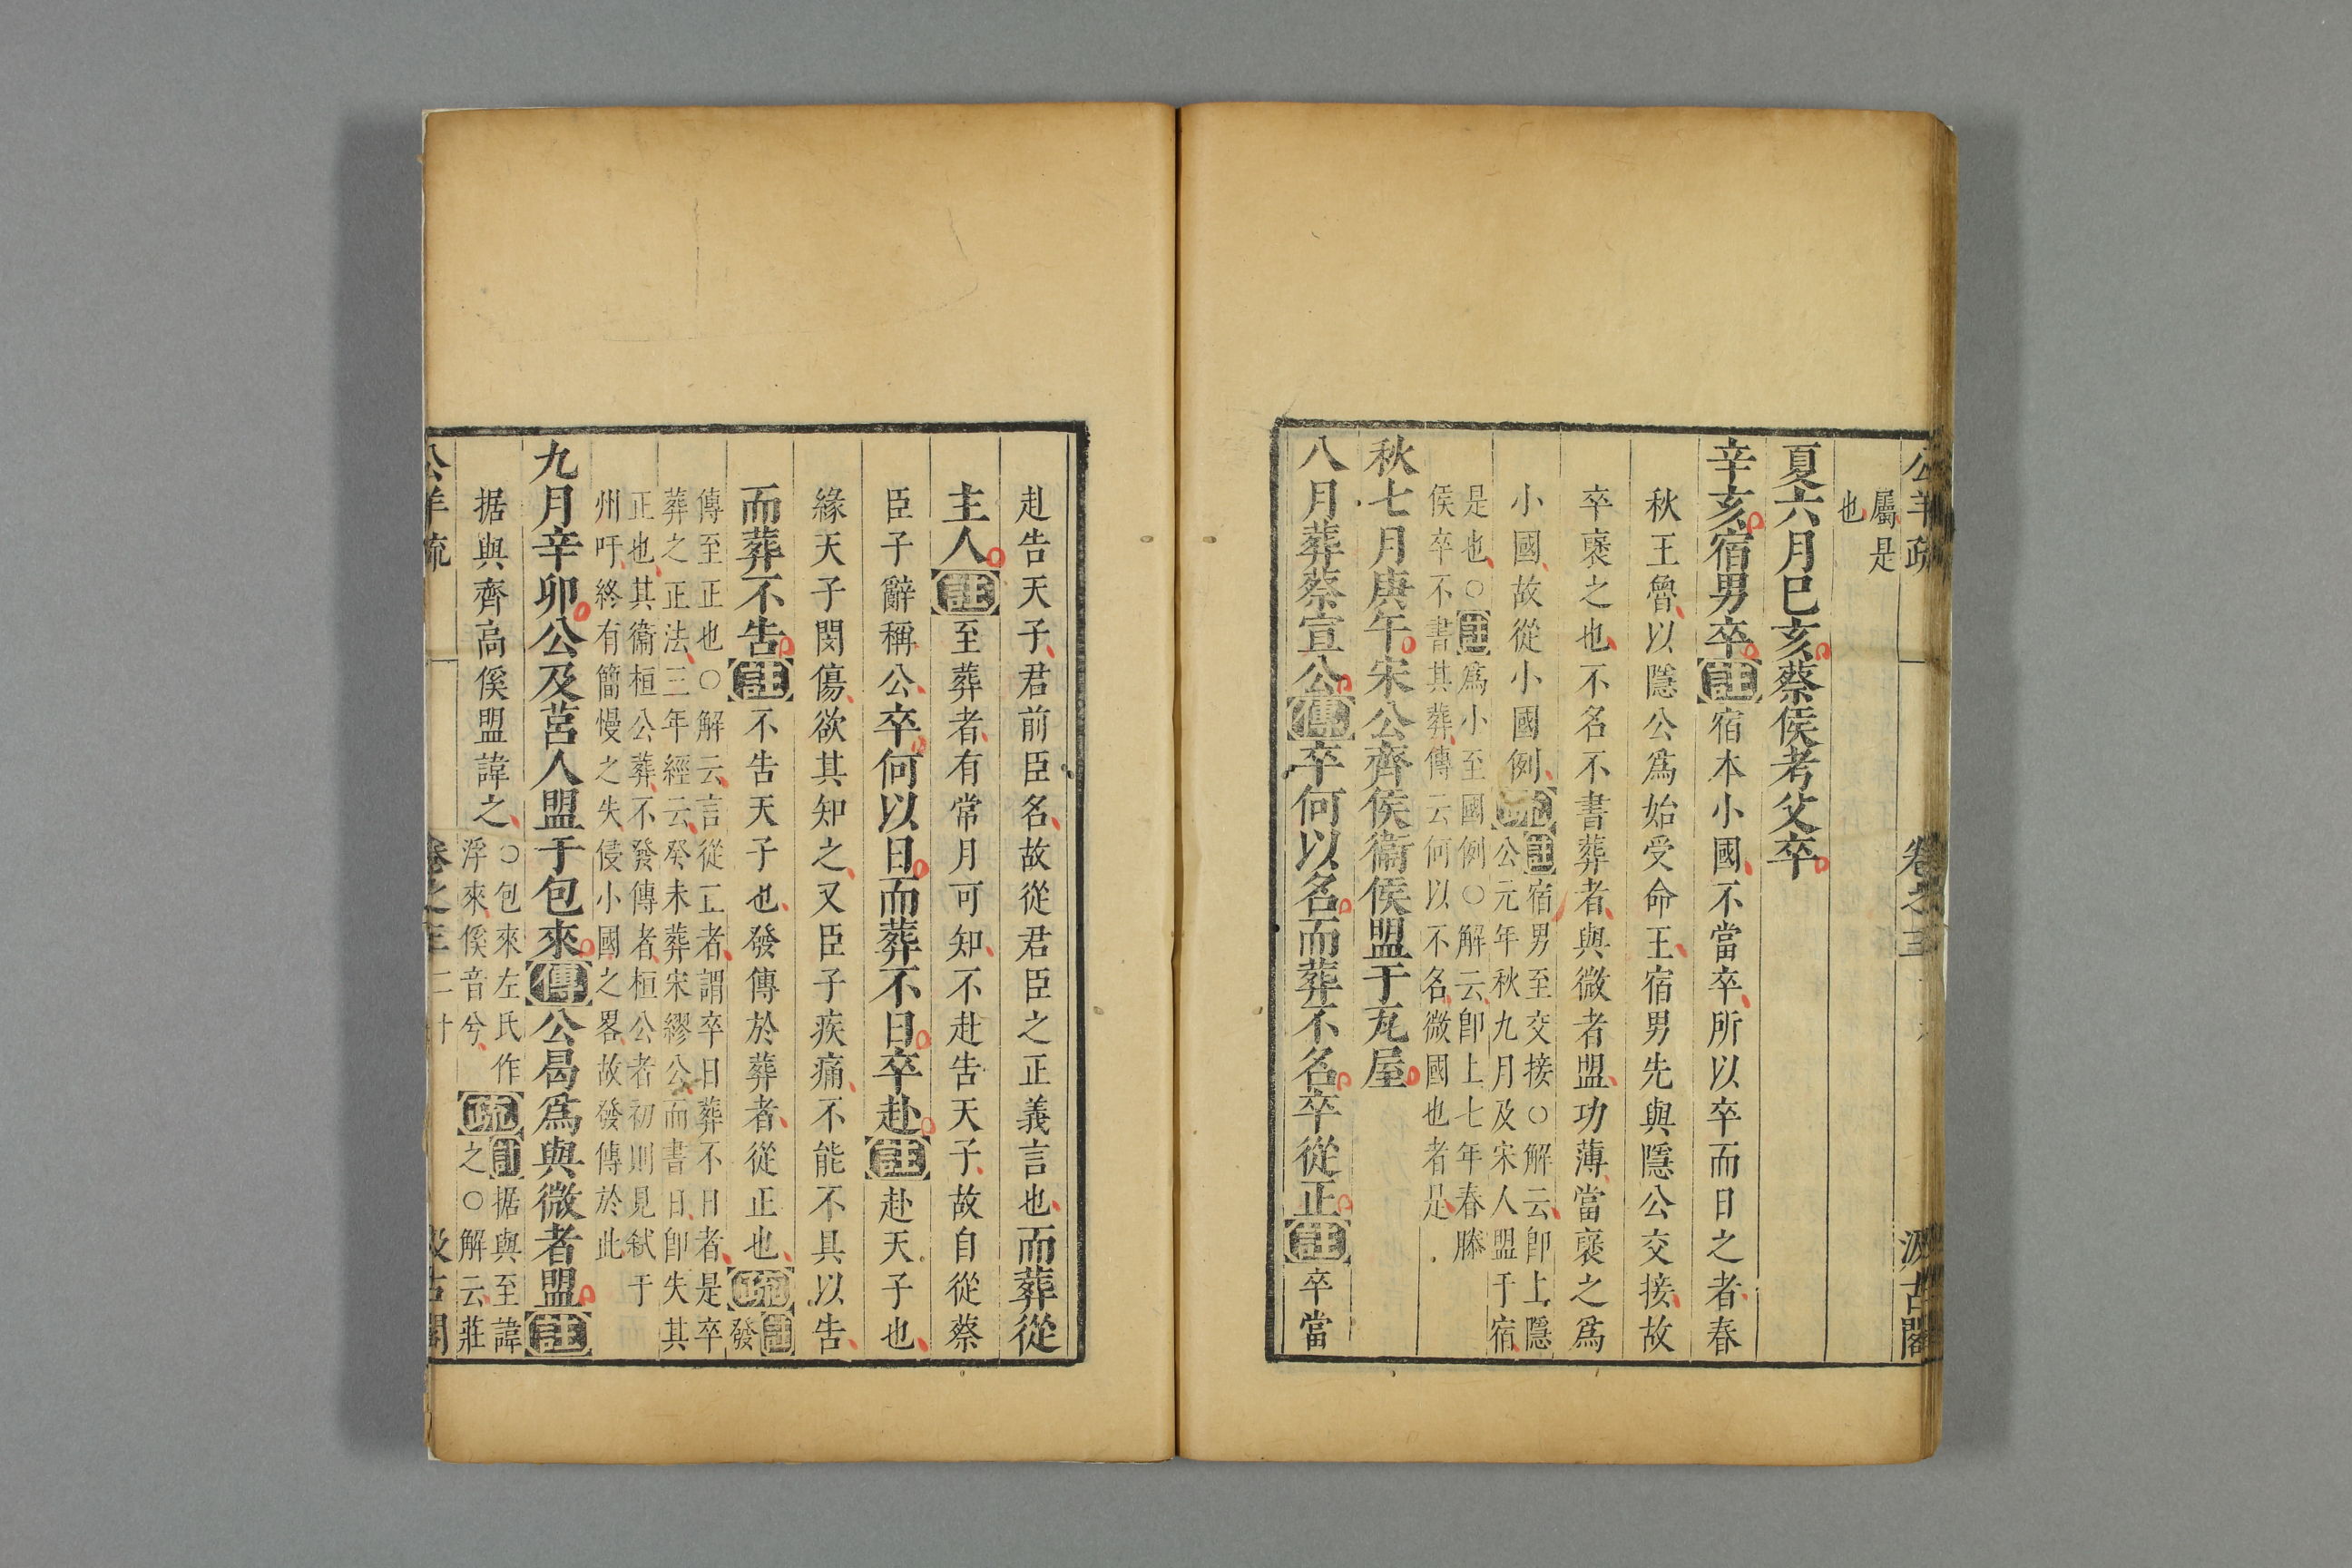 公羊疏 卷之三 汲古閣
屬是
也
夏六月巳亥蔡侯考父卒
辛亥宿男卒註宿本小國不當卒所以卒而日之者春
秋王魯以隱公爲始受命王宿男先與隱公交接故
卒襃之也不名不書葬者與微者盟功薄當襃之爲
小國故從小國例疏註宿男至交接○解云卽上隱
公元年秋九月及宋人盟于宿
是也○註爲小至國例○解云卽上七年春滕
侯卒不書其葬傳云何以不名微國也者是
秋七月庚午宋公齊侯衞侯盟于瓦屋
八月葬蔡宣公傳卒何以名而葬不名卒從正註卒當
赴告天子君前臣名故從君臣之正義言也而葬從
主人註至葬者有常月可知不赴告天子故自從蔡
臣子辭稱公卒何以日而葬不日卒赴註赴天子也
緣天子閔傷欲其知之又臣子疾痛不能不具以告
而葬不告註不告天子也發傳於葬者從正也疏註
發
傳至正也○解云言從正者謂卒日葬不日者是卒
葬之正法三年經云癸未葬宋繆公而書日卽失其
正也其衞桓公葬不發傳者桓公者初則見弑于
州吁終有簡慢之失侵小國之畧故發傳於此
九月辛卯公及莒人盟于包來傳公曷爲與微者盟註
据與齊高傒盟諱之○包來左氏作
浮來傒音兮疏註据與至諱
之○解云莊
公羊疏 卷之三 二十 汲古閣